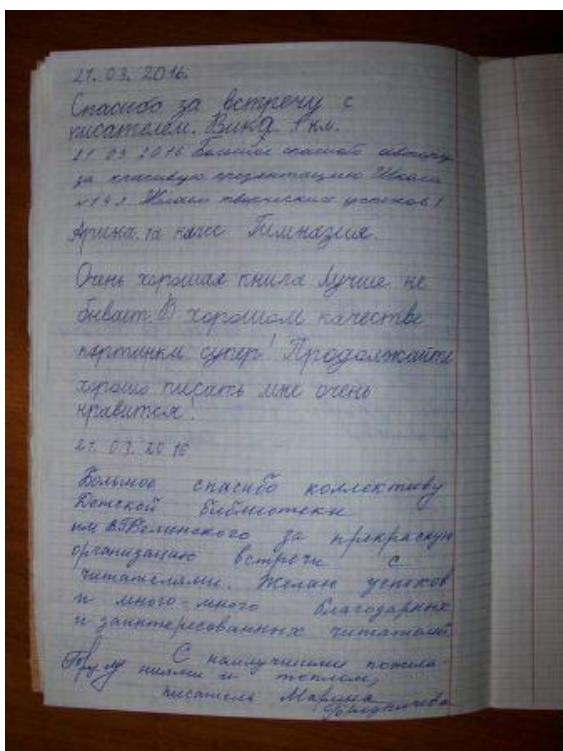 21.03.2016.
Спасибо за встречу с
писателем. Вика 1 кл.
21 03 2016 Большое спасибо автору
за красивую презентацию Школа
Желаем творческих успехов!
Арина. 1а класс Гимназия
Очень хорошая книга Лучше не
бывает. В хорошом качестве
картинки супер! Продолжайте
хорошо писать мне очень
нравится!
21. 03. 2016
Большое спасибо коллективу
Детской библиотеки
им В.Г.Белинского за прекрасную
организацию встречи с
читателями. Желаю успехов
и много-много благодарных
и заинтересованных читателей.
С наилучшими пожела-
ниями и теплом,
писатель Марина